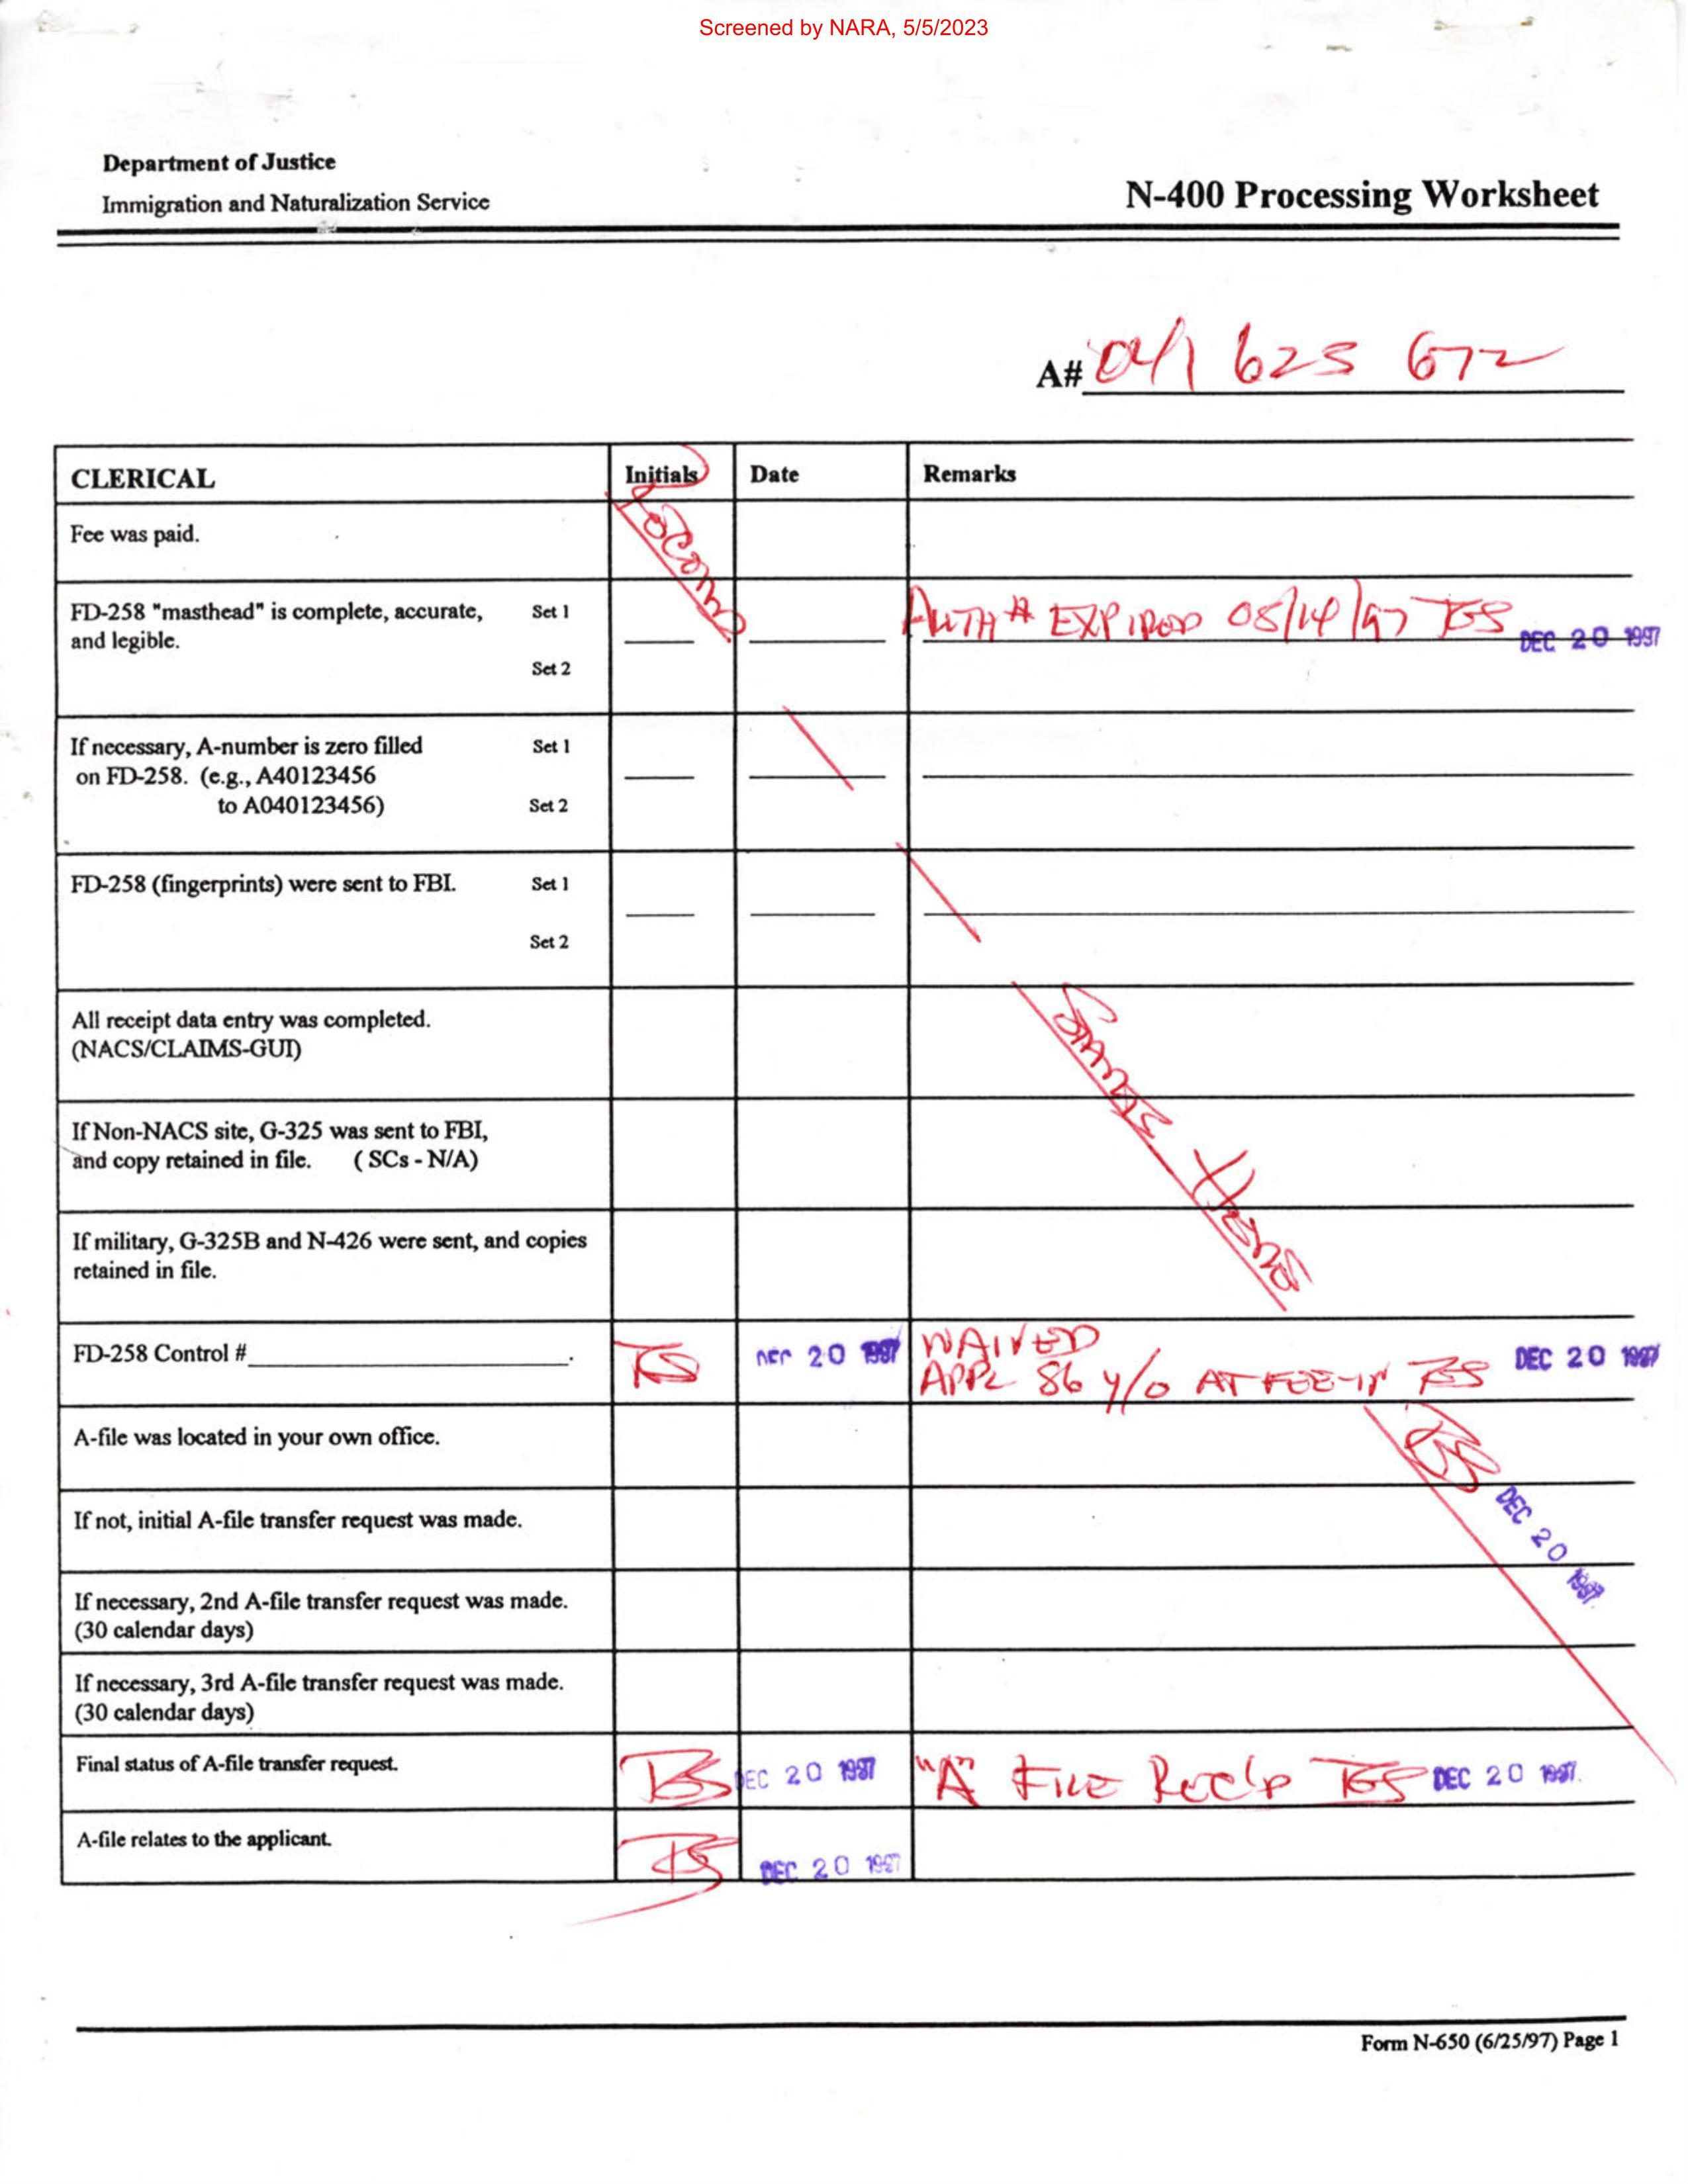 Screened by NARA, 5/5/2023
Department of Justice
Immigration and Naturalization Service
N-400 Processing Worksheet
A# 041 625 672
CLERICAL Initials Date Remarks
Fee was paid.
FD-258 "masthead" is complete, accurate, Set 1
and legible.
Set 2
AUTH # EXPIRED 05/14/97 TGS DEC 20 1997
If necessary, A-number is zero filled Set 1
on FD-258. (e.g., A40123456
to A040123456) Set 2
FD-258 (fingerprints) were sent to FBI. Set 1
Set 2
All receipt data entry was completed.
(NACS/CLAIMS-GUI)
If Non-NACS site, G-325 was sent to FBI,
and copy retained in file. ( SCs - N/A)
If military, G-325B and N-426 were sent, and copies
retained in file.
FD-258 Control # . DEC 20 1997 WAIVED
APPL 86 y/o AT FEE-IN TGS DEC 20 1997
A-file was located in your own office.
If not, initial A-file transfer request was made.
DEC 20 1997
If necessary, 2nd A-file transfer request was made.
(30 calendar days)
If necessary, 3rd A-file transfer request was made.
(30 calendar days)
Final status of A-file transfer request. DEC 20 1997 "A" FILE Rec'd TGS DEC 20 1997
A-file relates to the applicant. DEC 20 1997
Form N-650 (6/25/97) Page 1